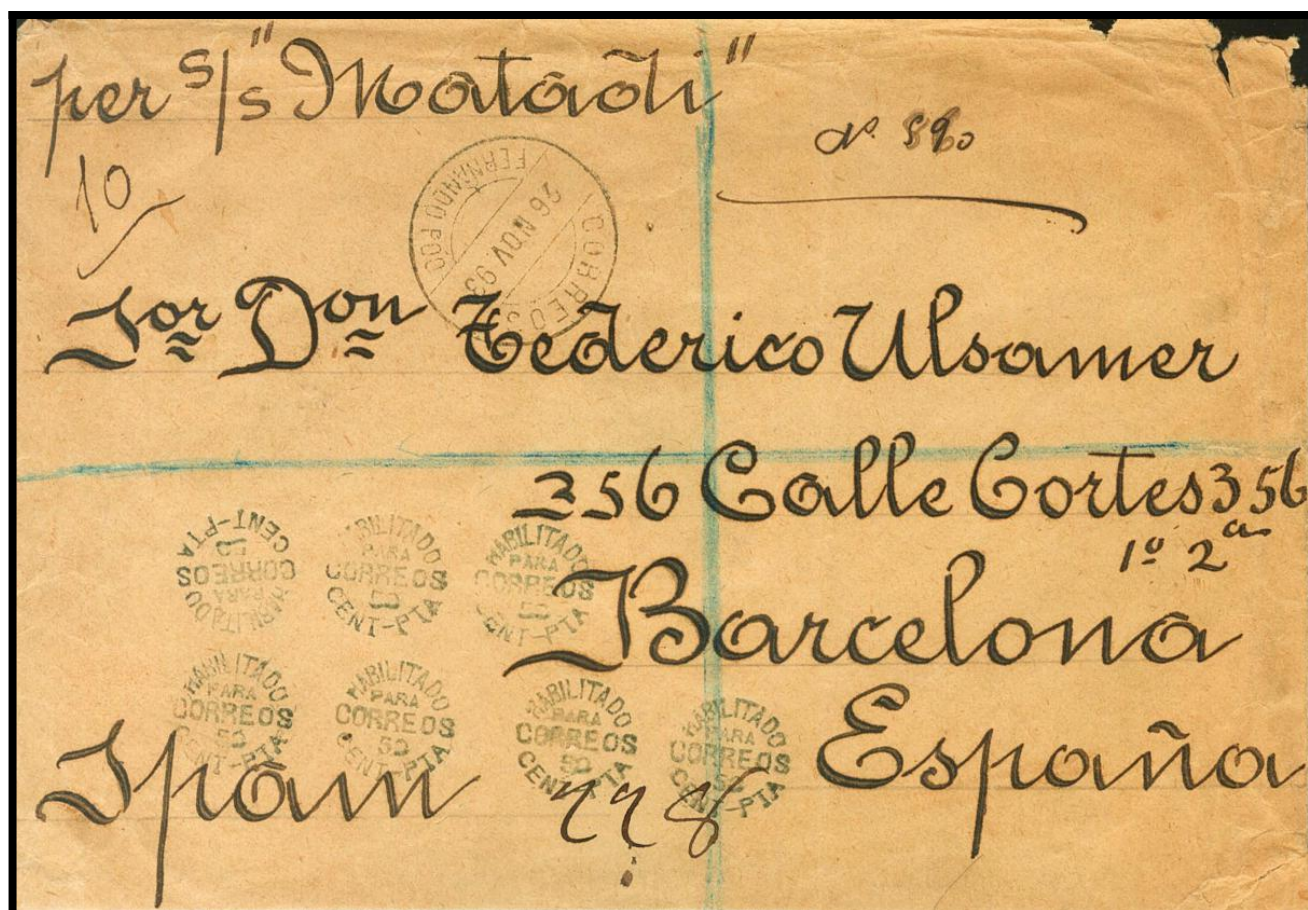 per s/s "Matadi"
Nº 890
10
CORREOS
FERNANDO POO
26 NOV. 93
Sor Don Federico Ulsamer
356 Calle Cortes 356
1º 2ª
Barcelona
España
Spain
778
HABILITADO
PARA
CORREOS
50
CENT-PTA
HABILITADO
PARA
CORREOS
50
CENT-PTA
HABILITADO
PARA
CORREOS
50
CENT-PTA
HABILITADO
PARA
CORREOS
50
CENT-PTA
HABILITADO
PARA
CORREOS
50
CENT-PTA
HABILITADO
PARA
CORREOS
50
CENT-PTA
HABILITADO
PARA
CORREOS
50
CENT-PTA